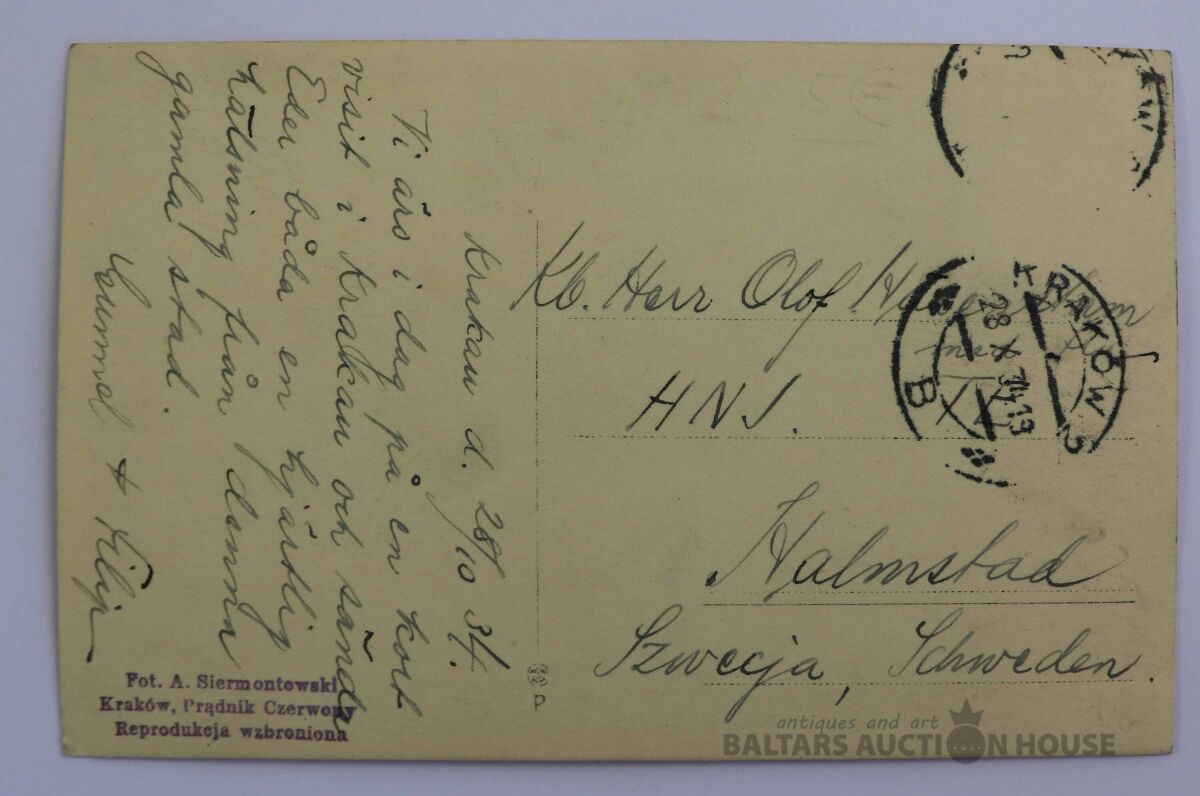 Krakau d. 28/10 34.
Vi äro i dag på en kort
visit i Krakau och sända
Eder båda en hjärtlig
hälsning från denna
gamla stad.
+ Filip
Kb. Herr Olof
HNJ.
Halmstad
Szwecja, Schweden.
KRAKÓW 2
28 X 34.13
B
Fot. A. Siermontowski
Kraków, Prądnik Czerwony
Reprodukcja wzbroniona
P
antiques and art
BALTARS AUCTION HOUSE